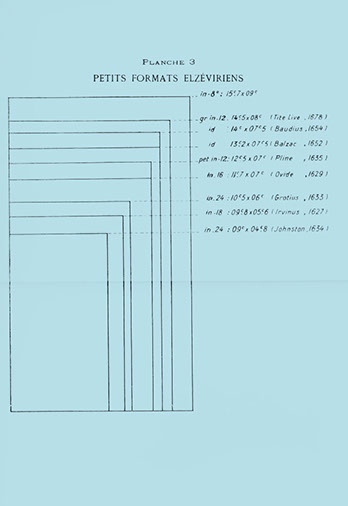 PLANCHE 3
PETITS FORMATS ELZÉVIRIENS
in-8°: 15ᶜ7x09ᶜ
gr in.12: 14ᶜ5x08ᶜ (Tite Live, 1678)
id : 14ᶜ x 07ᶜ5 (Baudius, 1654)
id : 13ᶜ2x07ᶜ5 (Balzac, 1652)
pet in-12: 12ᶜ5x07ᶜ (Pline, 1635)
in.16 : 11ᶜ7x07ᶜ (Ovide, 1629)
in.24 : 10ᶜ5x06ᶜ (Grotius, 1633)
in-18 : 09ᶜ8x05ᶜ6 (Irvinus, 1627)
in.24 : 09ᶜ x 04ᶜ8 (Johnston, 1634)